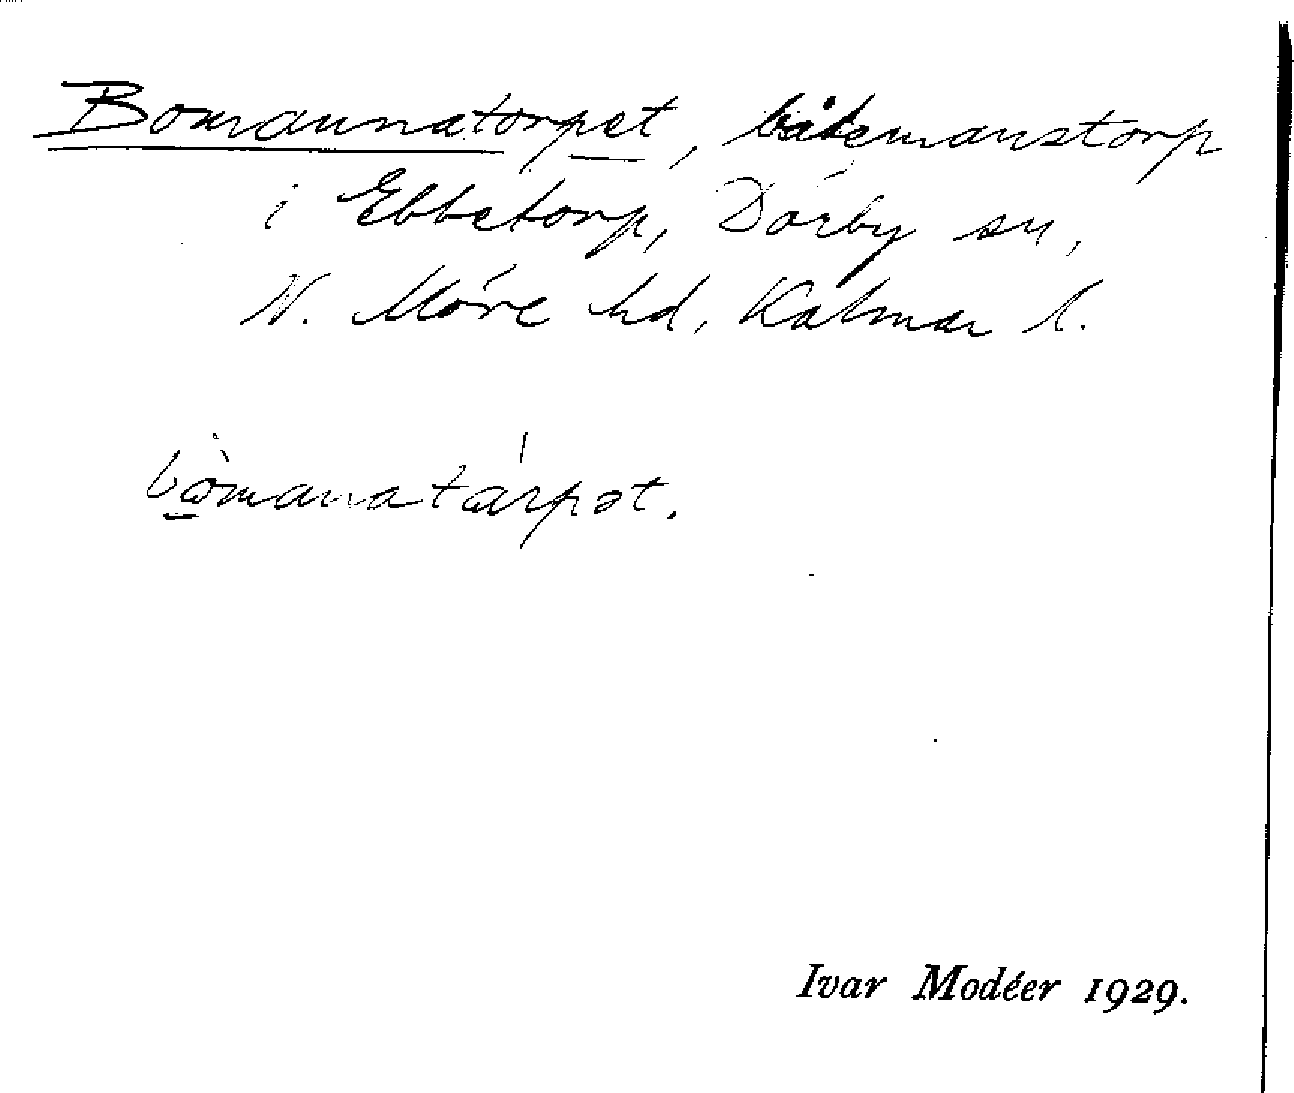 Bomannatorpet, båtsmanstorp
i Ebbetorp, Dörby sn,
N. Möre hd, Kalmar l.
bòmanatárpət.
Ivar Modéer 1929.